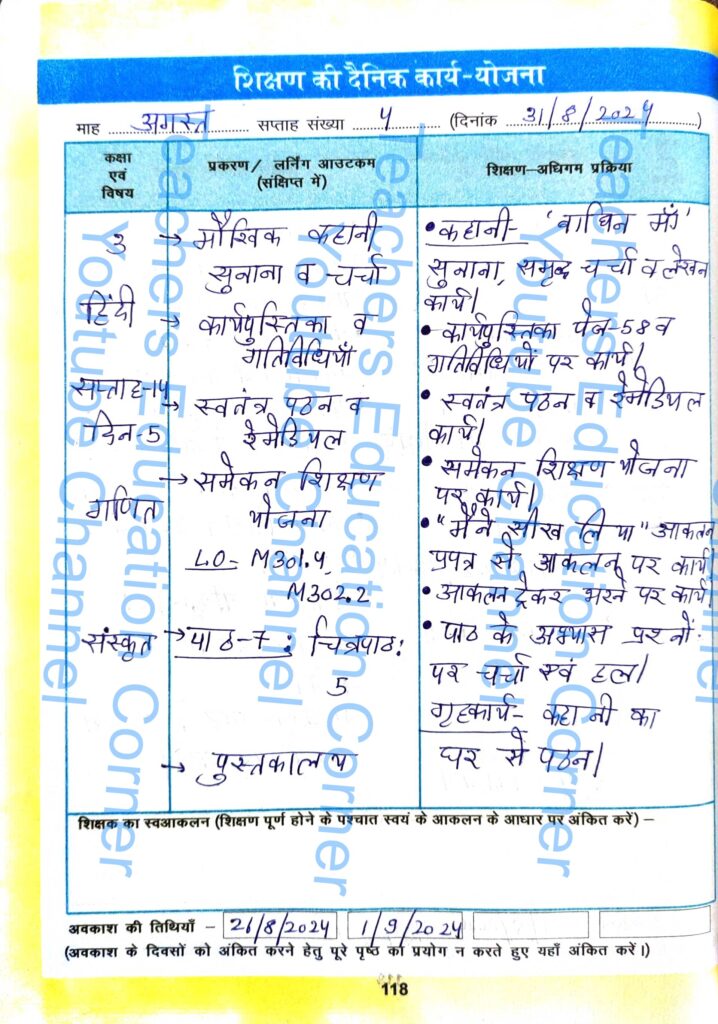 शिक्षण की दैनिक कार्य-योजना
माह अगस्त सप्ताह संख्या 4 (दिनांक 31/8/2024)
कक्षा एवं विषय
प्रकरण/ लर्निंग आउटकम (संक्षिप्त में)
शिक्षण–अधिगम प्रक्रिया
3
हिंदी
सप्ताह-14
दिन-5
गणित
संस्कृत
→ मौखिक कहानी
सुनाना व चर्चा
→ कार्यपुस्तिका व
गतिविधियाँ
→ स्वतंत्र पठन व
रेमेडियल
→ समेकन शिक्षण
योजना
LO- M301.4,
M302.2
→ पाठ-7: चित्रपाठ:
5
→ पुस्तकालय
• कहानी- 'बाघिन माँ'
सुनाना, समृद्ध चर्चा व लेखन
कार्य।
• कार्यपुस्तिका पेज-58 व
गतिविधियों पर कार्य।
• स्वतंत्र पठन व रेमेडियल
कार्य।
• समेकन शिक्षण योजना
पर कार्य।
• "मैंने सीख लिया" आकलन
प्रपत्र से आकलन पर कार्य।
• आकलन ट्रेकर भरने पर कार्य।
• पाठ के अभ्यास प्रश्नों
पर चर्चा एवं हल।
गृहकार्य- कहानी का
घर से पठन।
शिक्षक का स्वआकलन (शिक्षण पूर्ण होने के पश्चात स्वयं के आकलन के आधार पर अंकित करें) –
अवकाश की तिथियाँ - 26/8/2024 1/9/2024
(अवकाश के दिवसों को अंकित करने हेतु पूरे पृष्ठ का प्रयोग न करते हुए यहाँ अंकित करें।)
118
Teachers Education Corner
Youtube Channel
Teachers Education Corner
Youtube Channel